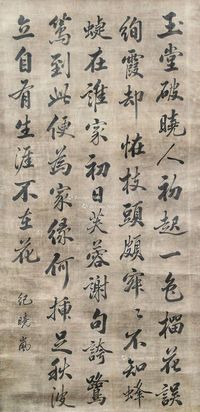 玉堂破曉人初起一色榴花誤
絢霞却怪枝頭頗窄〻不知蜂
蜨在誰家初日芙蓉謝句誇鷺
篤到此便為家緣何插足秋波
立自有生涯不在花
紀曉嵐